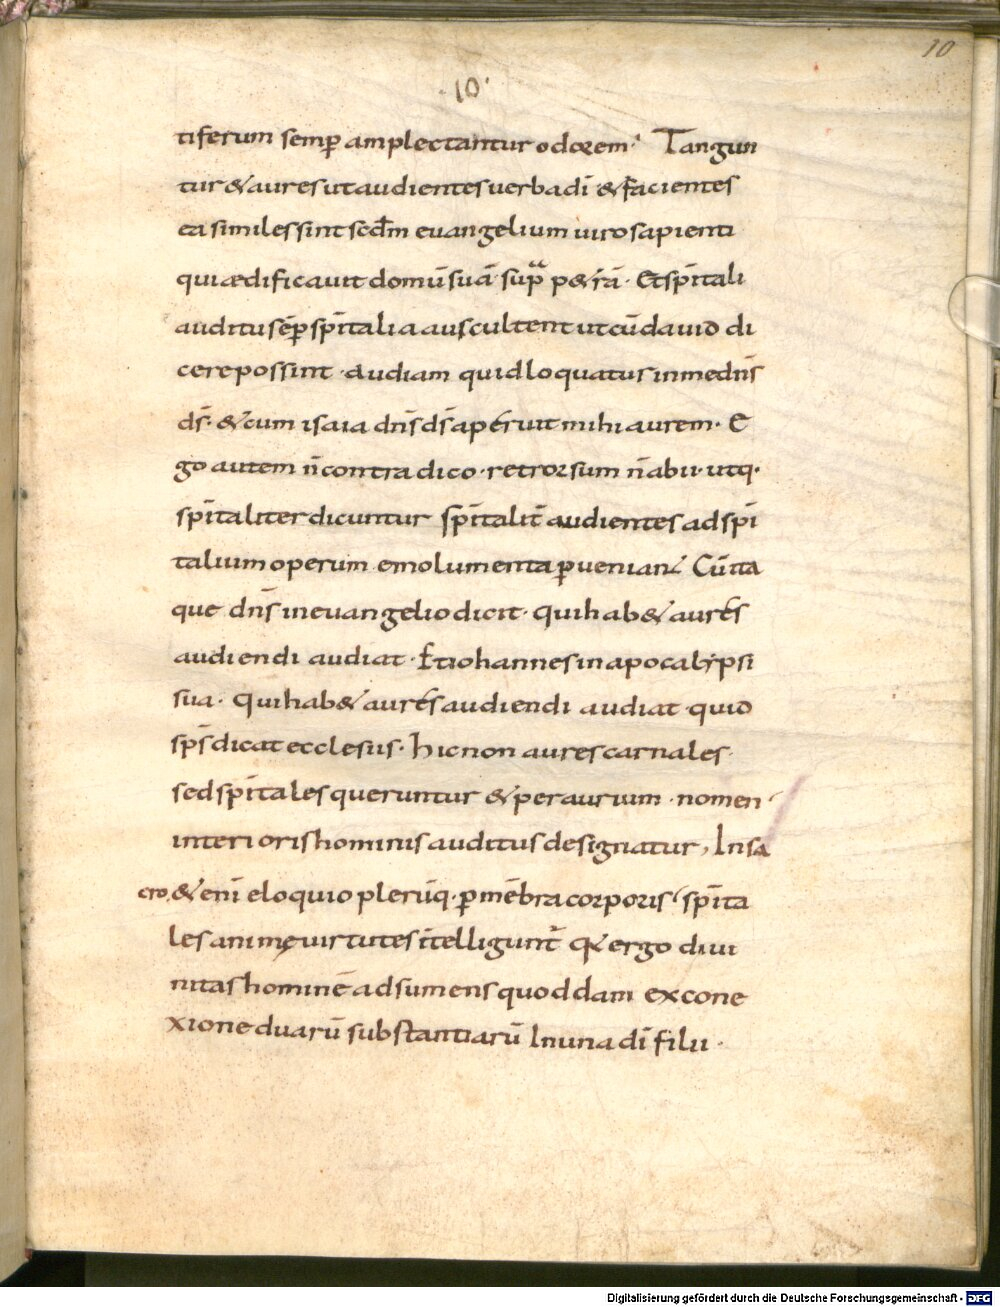 10
·10·
tiferum semp̄ amplectantur odorem· Tangun
tur & aures ut audientes uerba dī & facientes
ea similes sint scd̄m euangelium uiro sapienti
qui ædificauit domū suā sup̄ p&rā· Et spītali
auditu sēp̄ spītalia auscultent ut cū dauid di
cere possint · Audiam quid loquatus in me dn̄s
ds̄· & cum isaia dn̄s ds̄ aperuit mihi aurem· E
go autem n̄ contradico· retrorsum n̄ abii· utq·
spītaliter dicuntur spītalit̄ audientes ad spī
talium operum emolumenta p̄ueniant̄ Cū ita
que dn̄s in euangelio dicit· Qui hab& aures
audiendi audiat· Et iohannes in apocalypsi
sua· Qui hab& aures audiendi audiat quid
sps̄ dicat ecclesiis· hic non aures carnales·
sed spītales queruntur & per aurium · nomen·
interioris hominis auditus designatur, In sa
cro, & enī eloquio plerūq· p̄ mēbra corporis spīta
les animę uirtutes ītelligunt̄ Q& ergo diui
nitas hominē adsumens quoddam ex cone
xione duarū substantiarū In una dī filii·
Digitalisierung gefördert durch die Deutsche Forschungsgemeinschaft - DFG